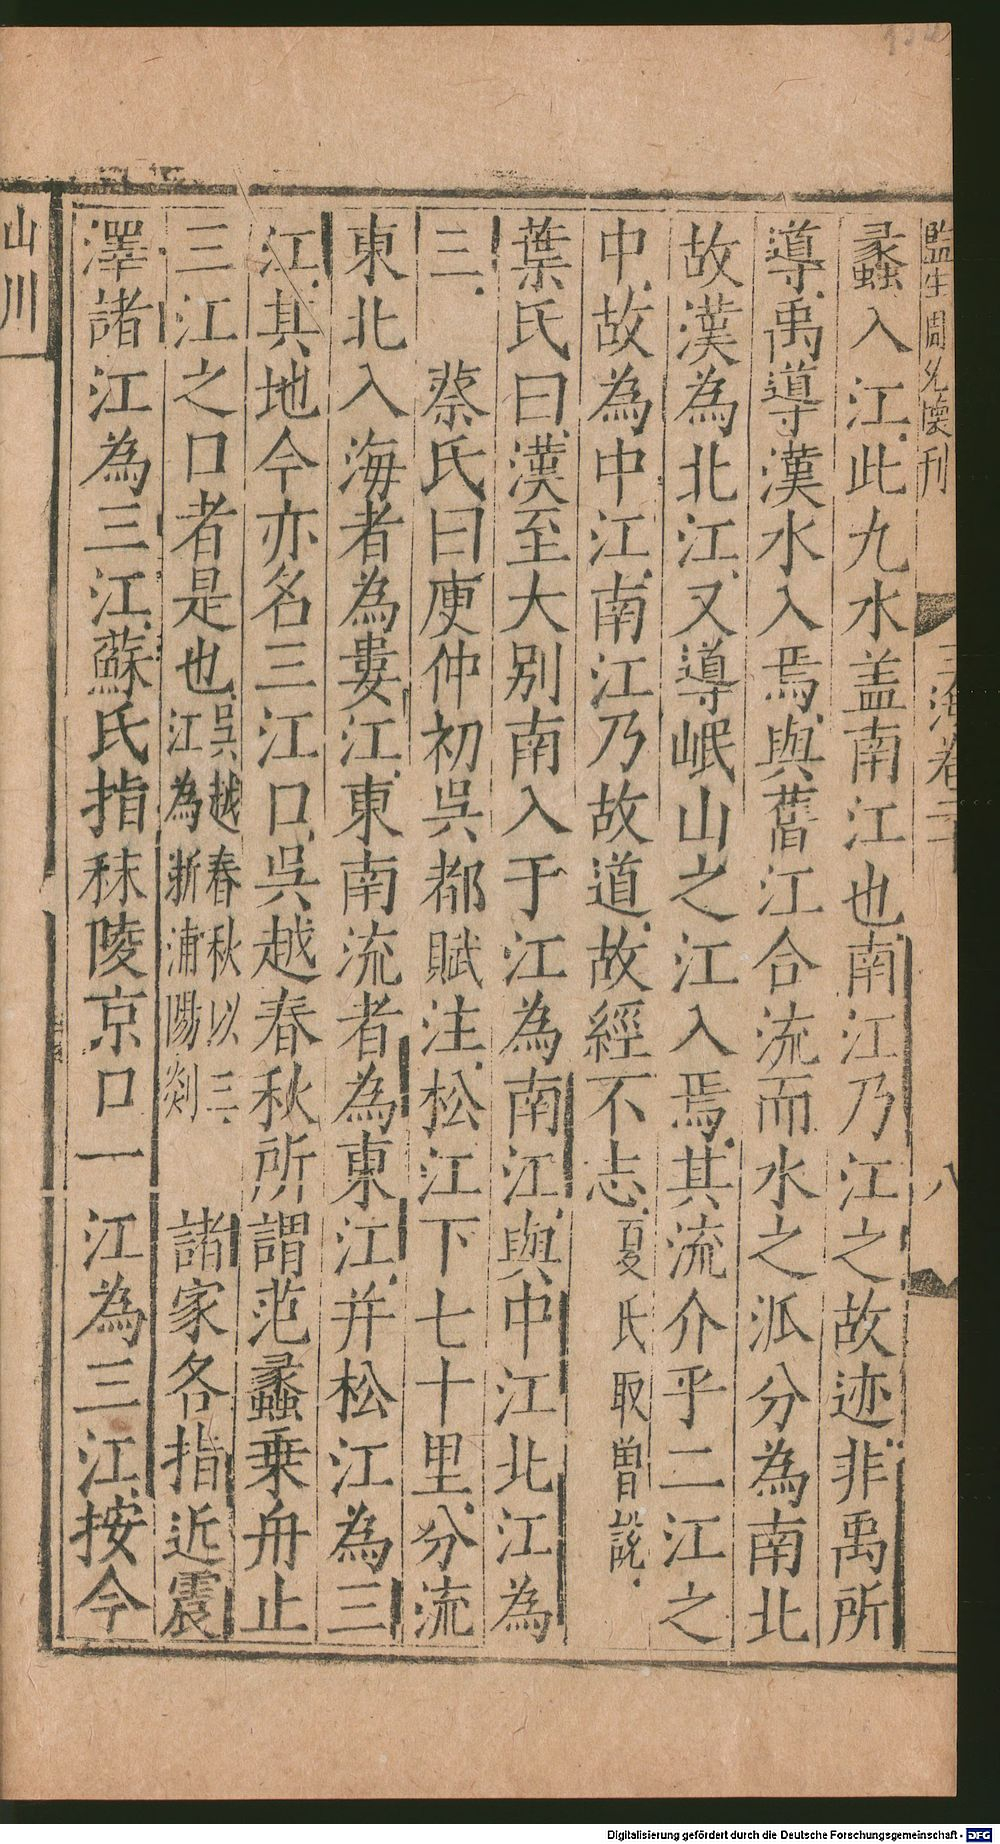 監生周允懷刊
玉海卷二
八
蠡入江此九水盖南江也南江乃江之故迹非禹所
導禹導漢水入焉與舊江合流而水之派分為南北
故漢為北江又導岷山之江入焉其流介乎二江之
中故為中江南江乃故道故經不志夏氏取曽說
葉氏曰漢至大别南入于江為南江與中江北江為
三 蔡氏曰庾仲初吳都賦注松江下七十里分流
東北入海者為婁江東南流者為東江并松江為三
江其地今亦名三江口吳越春秋所謂范蠡乗舟止
三江之口者是也吳越春秋以三江為浙浦陽剡 諸家各指近震
澤諸江為三江蘇氏指秣陵京口一江為三江按今
山川
Digitalisierung gefördert durch die Deutsche Forschungsgemeinschaft - DFG